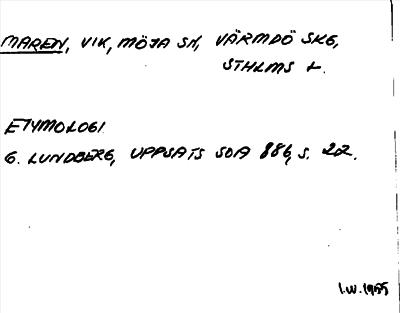 MAREN, VIK, MÖJA SN, VÄRMDÖ SKG,
STHLMS L.
ETYMOLOGI
G. LUNDBERG, UPPSATS SOA 886, S. 22.
I.W. 1955